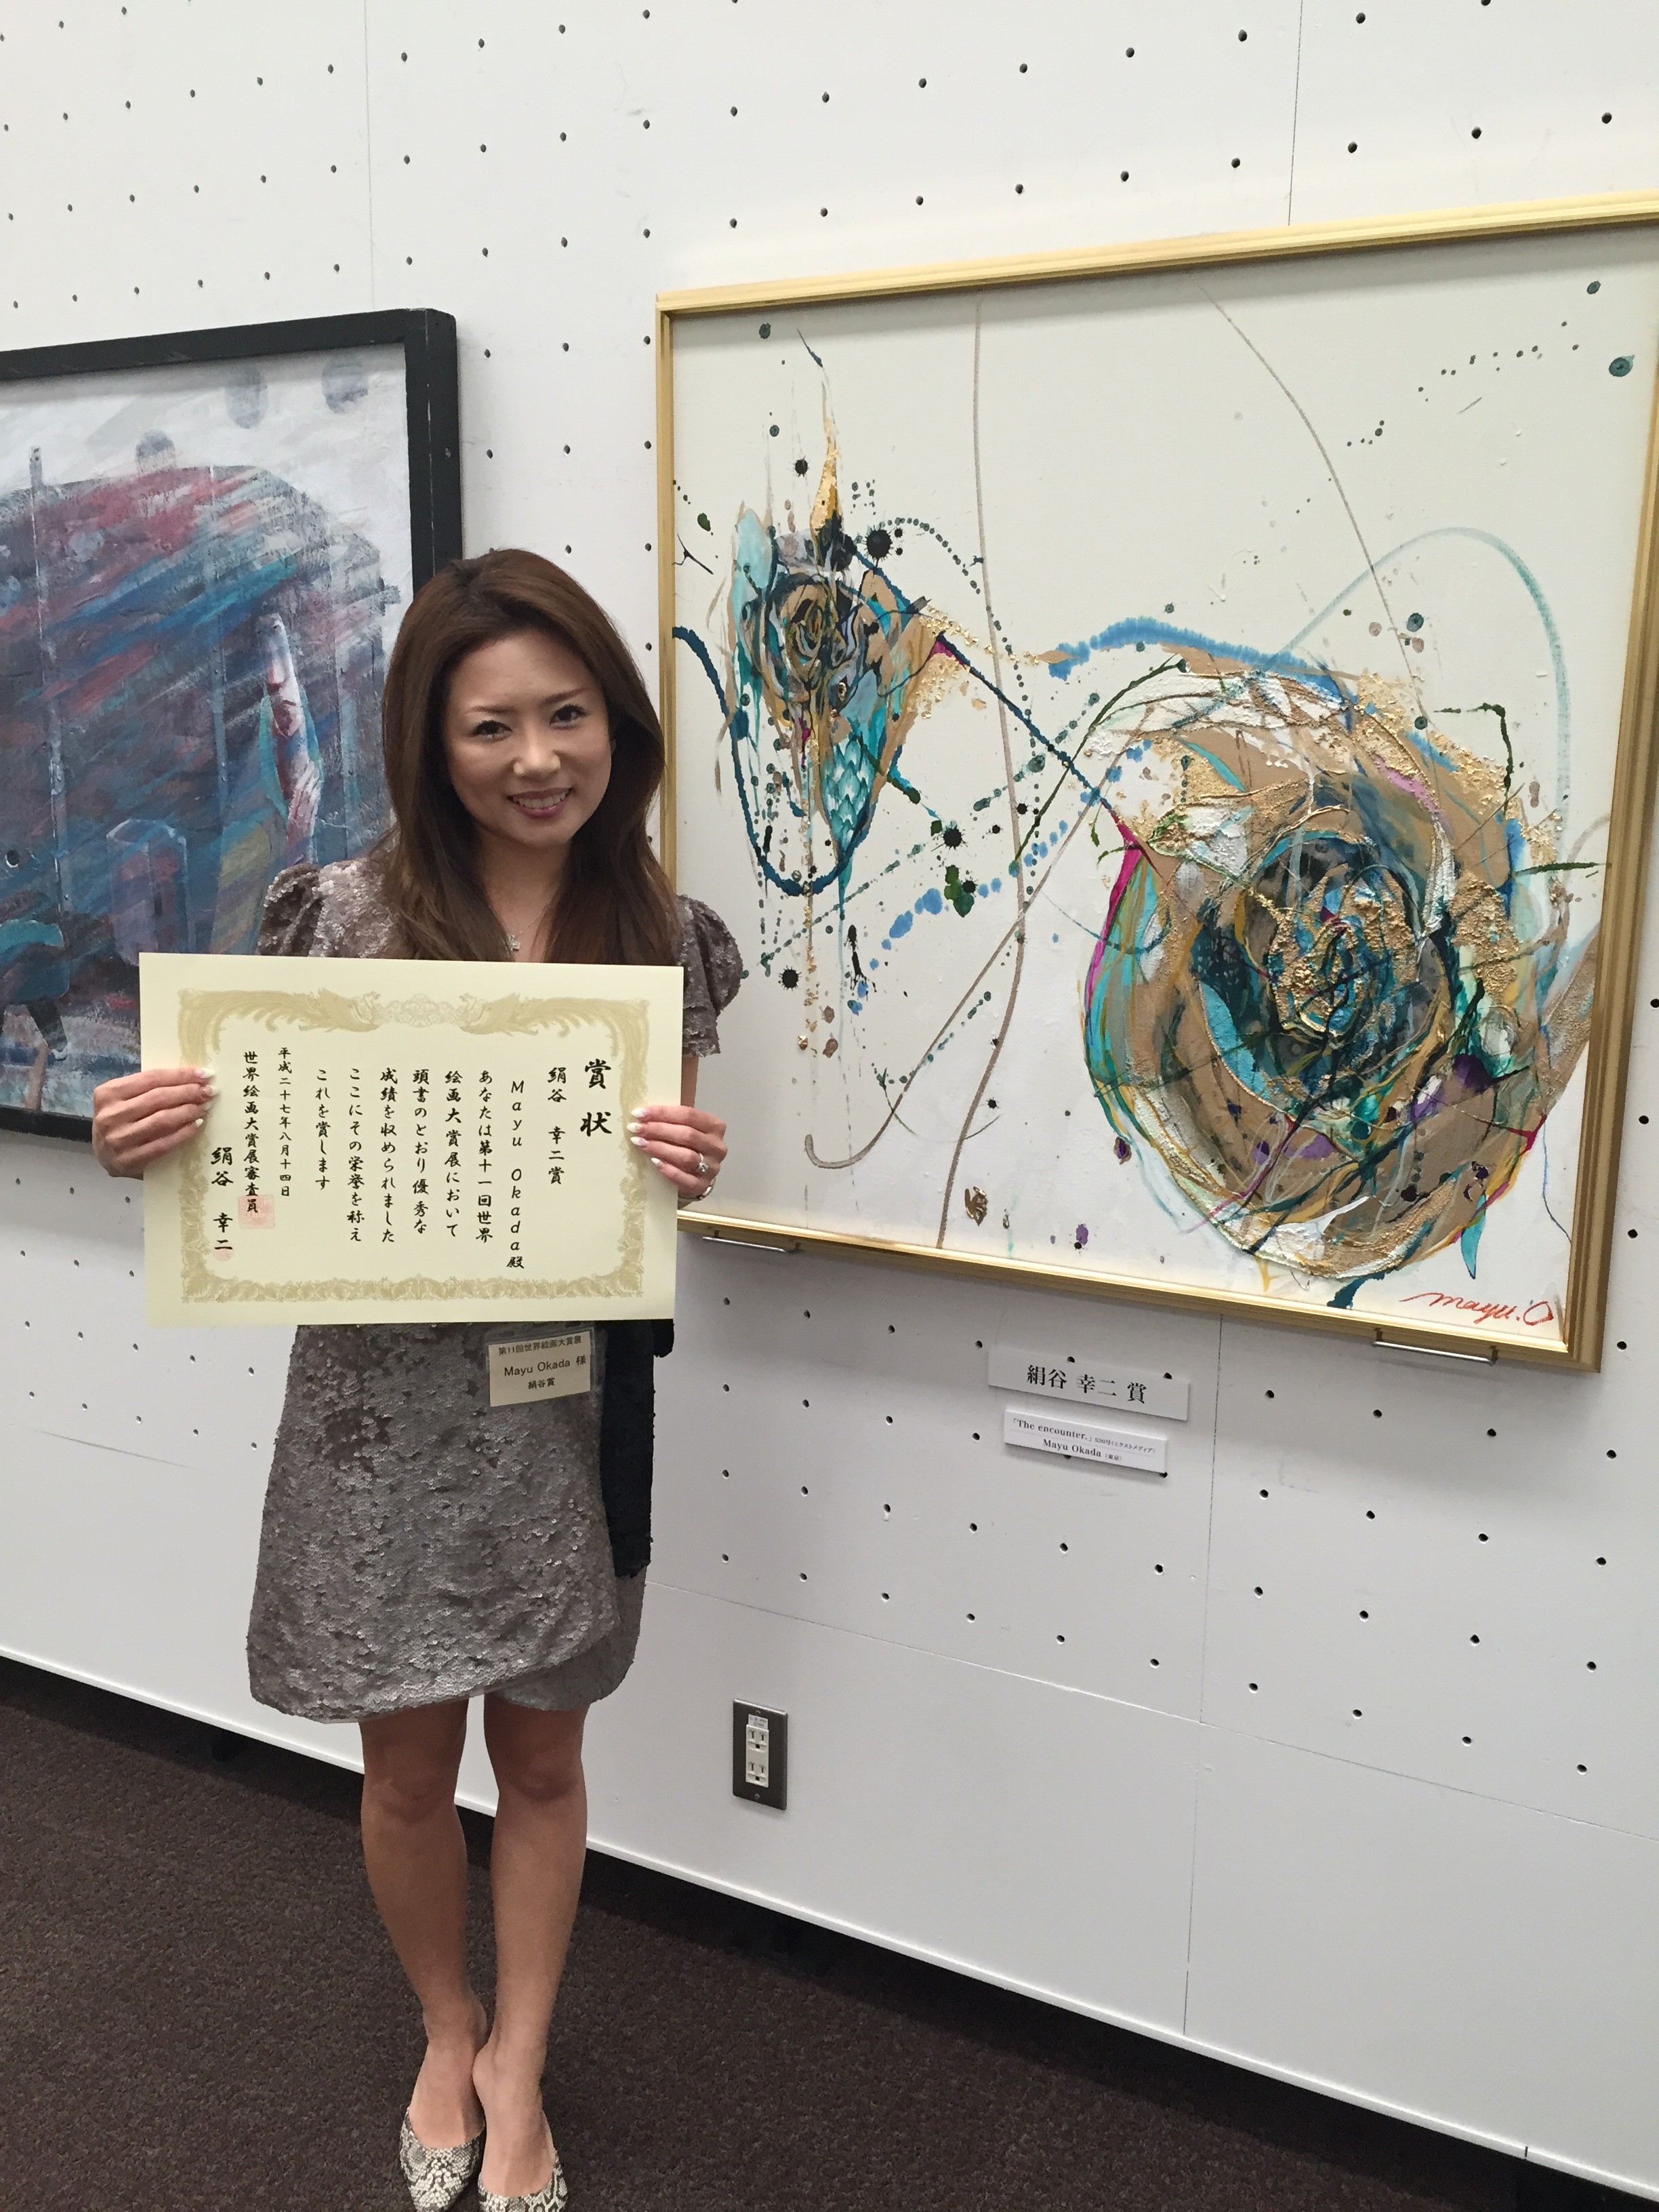 賞状
絹谷 幸二賞
Mayu Okada殿
あなたは第十一回世界
絵画大賞展において
頭書のとおり優秀な
成績を収められました
ここにその栄誉を称え
これを賞します
平成二十七年八月十四日
世界絵画大賞展審査員
絹谷 幸二
第11回世界絵画大賞展
Mayu Okada 様
絹谷賞
mayu.O
絹谷 幸二 賞
「The encounter.」S30号(ミクストメディア)
Mayu Okada (東京)